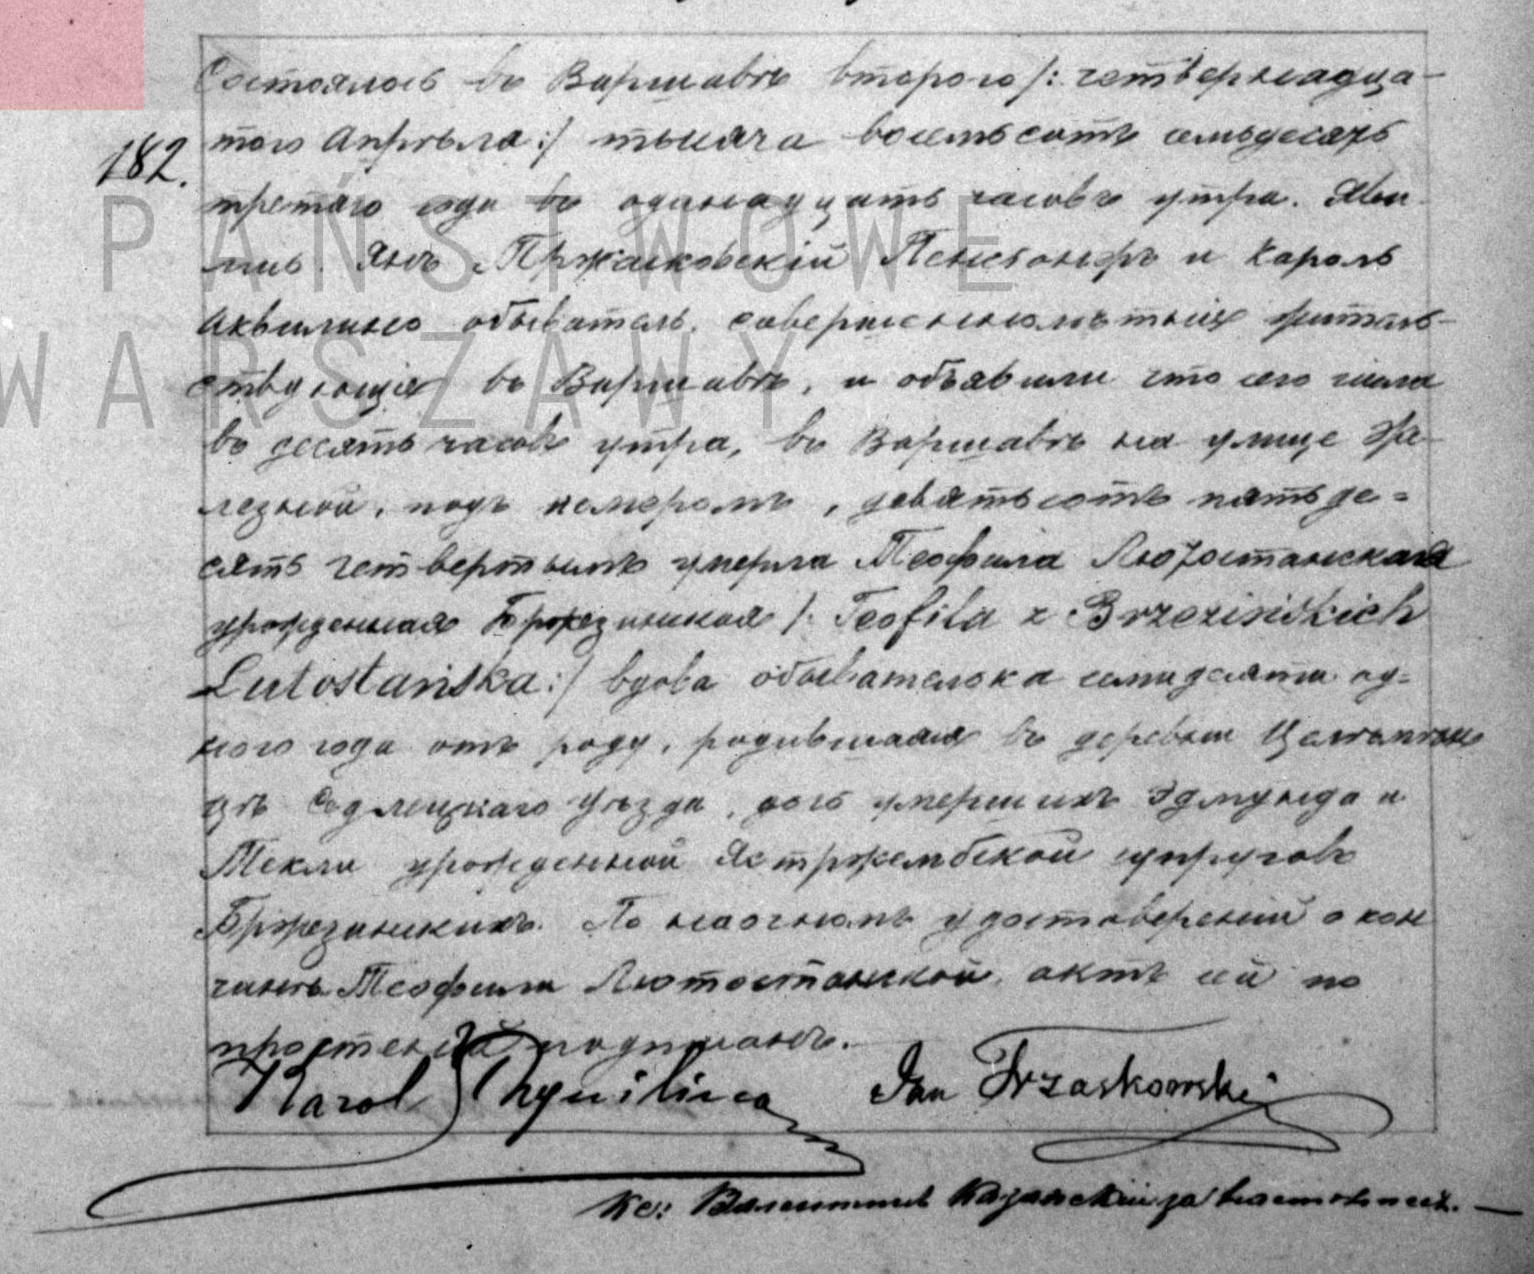 Состоялось въ Варшавѣ втораго /: четвернадца-
того Апрѣля :/ тысяча восемьсотъ семьдесятъ
182.
третяго года въ одинадцать часовъ утра. Яви-
лись Янъ Тржасковскій Пенсіонеръ и Кароль
Аквилино обыватель совершеннолѣтніе житель-
ствующіе въ Варшавѣ, и объявили что сего числа
въ десять часовъ утра, въ Варшавѣ на улицѣ Же-
лезной, подъ номеромъ, девятьсотъ пятьде=
сятъ четвертымъ умерла Теофила Лютостанская
урожденная Бржезинская /: Teofila z Brzezińskich
Lutostańska :/ вдова обывателька семидесяти од=
ного года отъ роду, родившаяся въ деревни
цѣ Седлецкаго Уѣзда, дочь умершихъ Эдмунда и
Текли урожденной Ястржембской супруговъ
Бржезинскихъ. По наочномъ удостоверений о кон
чинѣ Теофили Лютостанской, актъ сей по
прочтений подписанъ.
Karol Aquilino Jan Trzaskowski
Кс: Валентинъ за настоятеля. —
PAŃSTWOWE
WARSZAWY